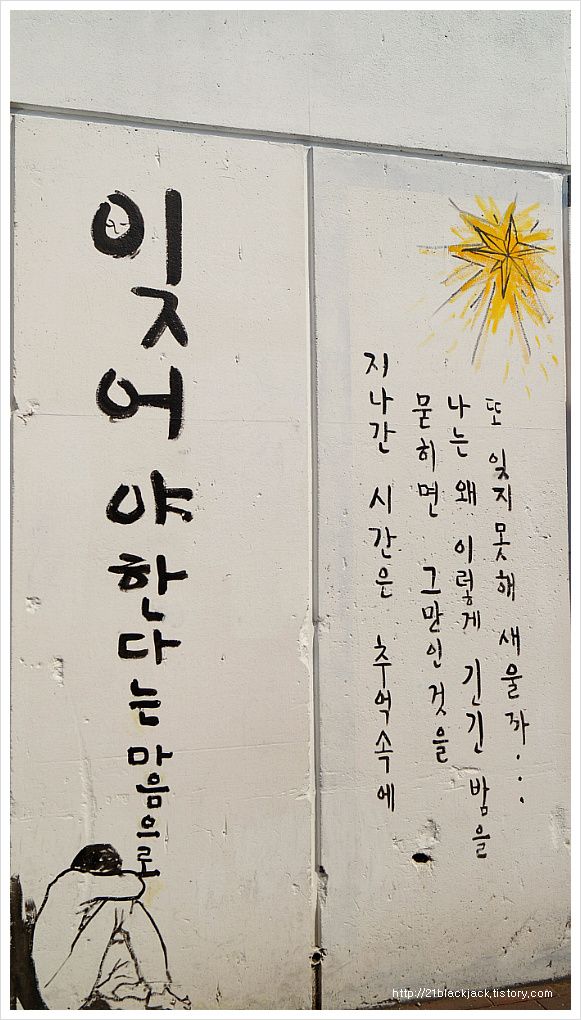 잊어야한다는마음으로
지나간 시간은 추억속에
묻히면 그만인것을
나는 왜 이렇게 긴긴 밤을
또 잊지못해 새울까...
http://21blackjack.tistory.com/